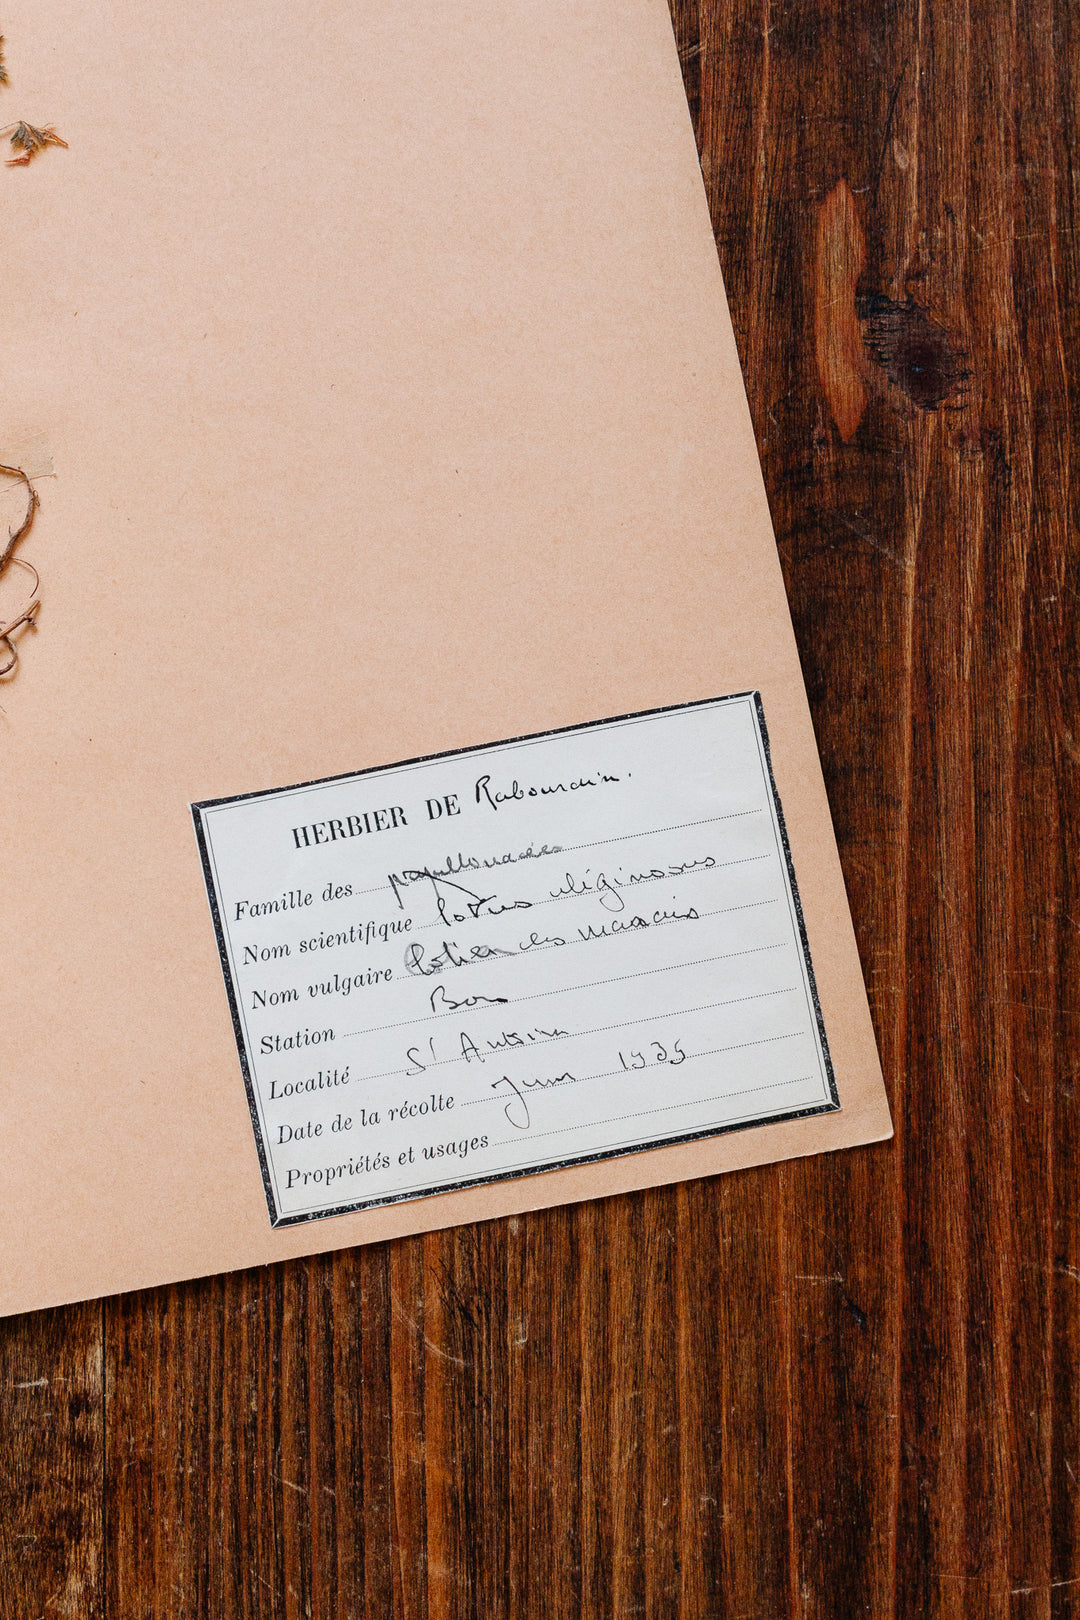 HERBIER DE Rabourdin.
Famille des papillonacées
Nom scientifique lotus uliginosus
Nom vulgaire lotier des marais
Station Bois
Localité St Antoine
Date de la récolte Juin 1935
Propriétés et usages